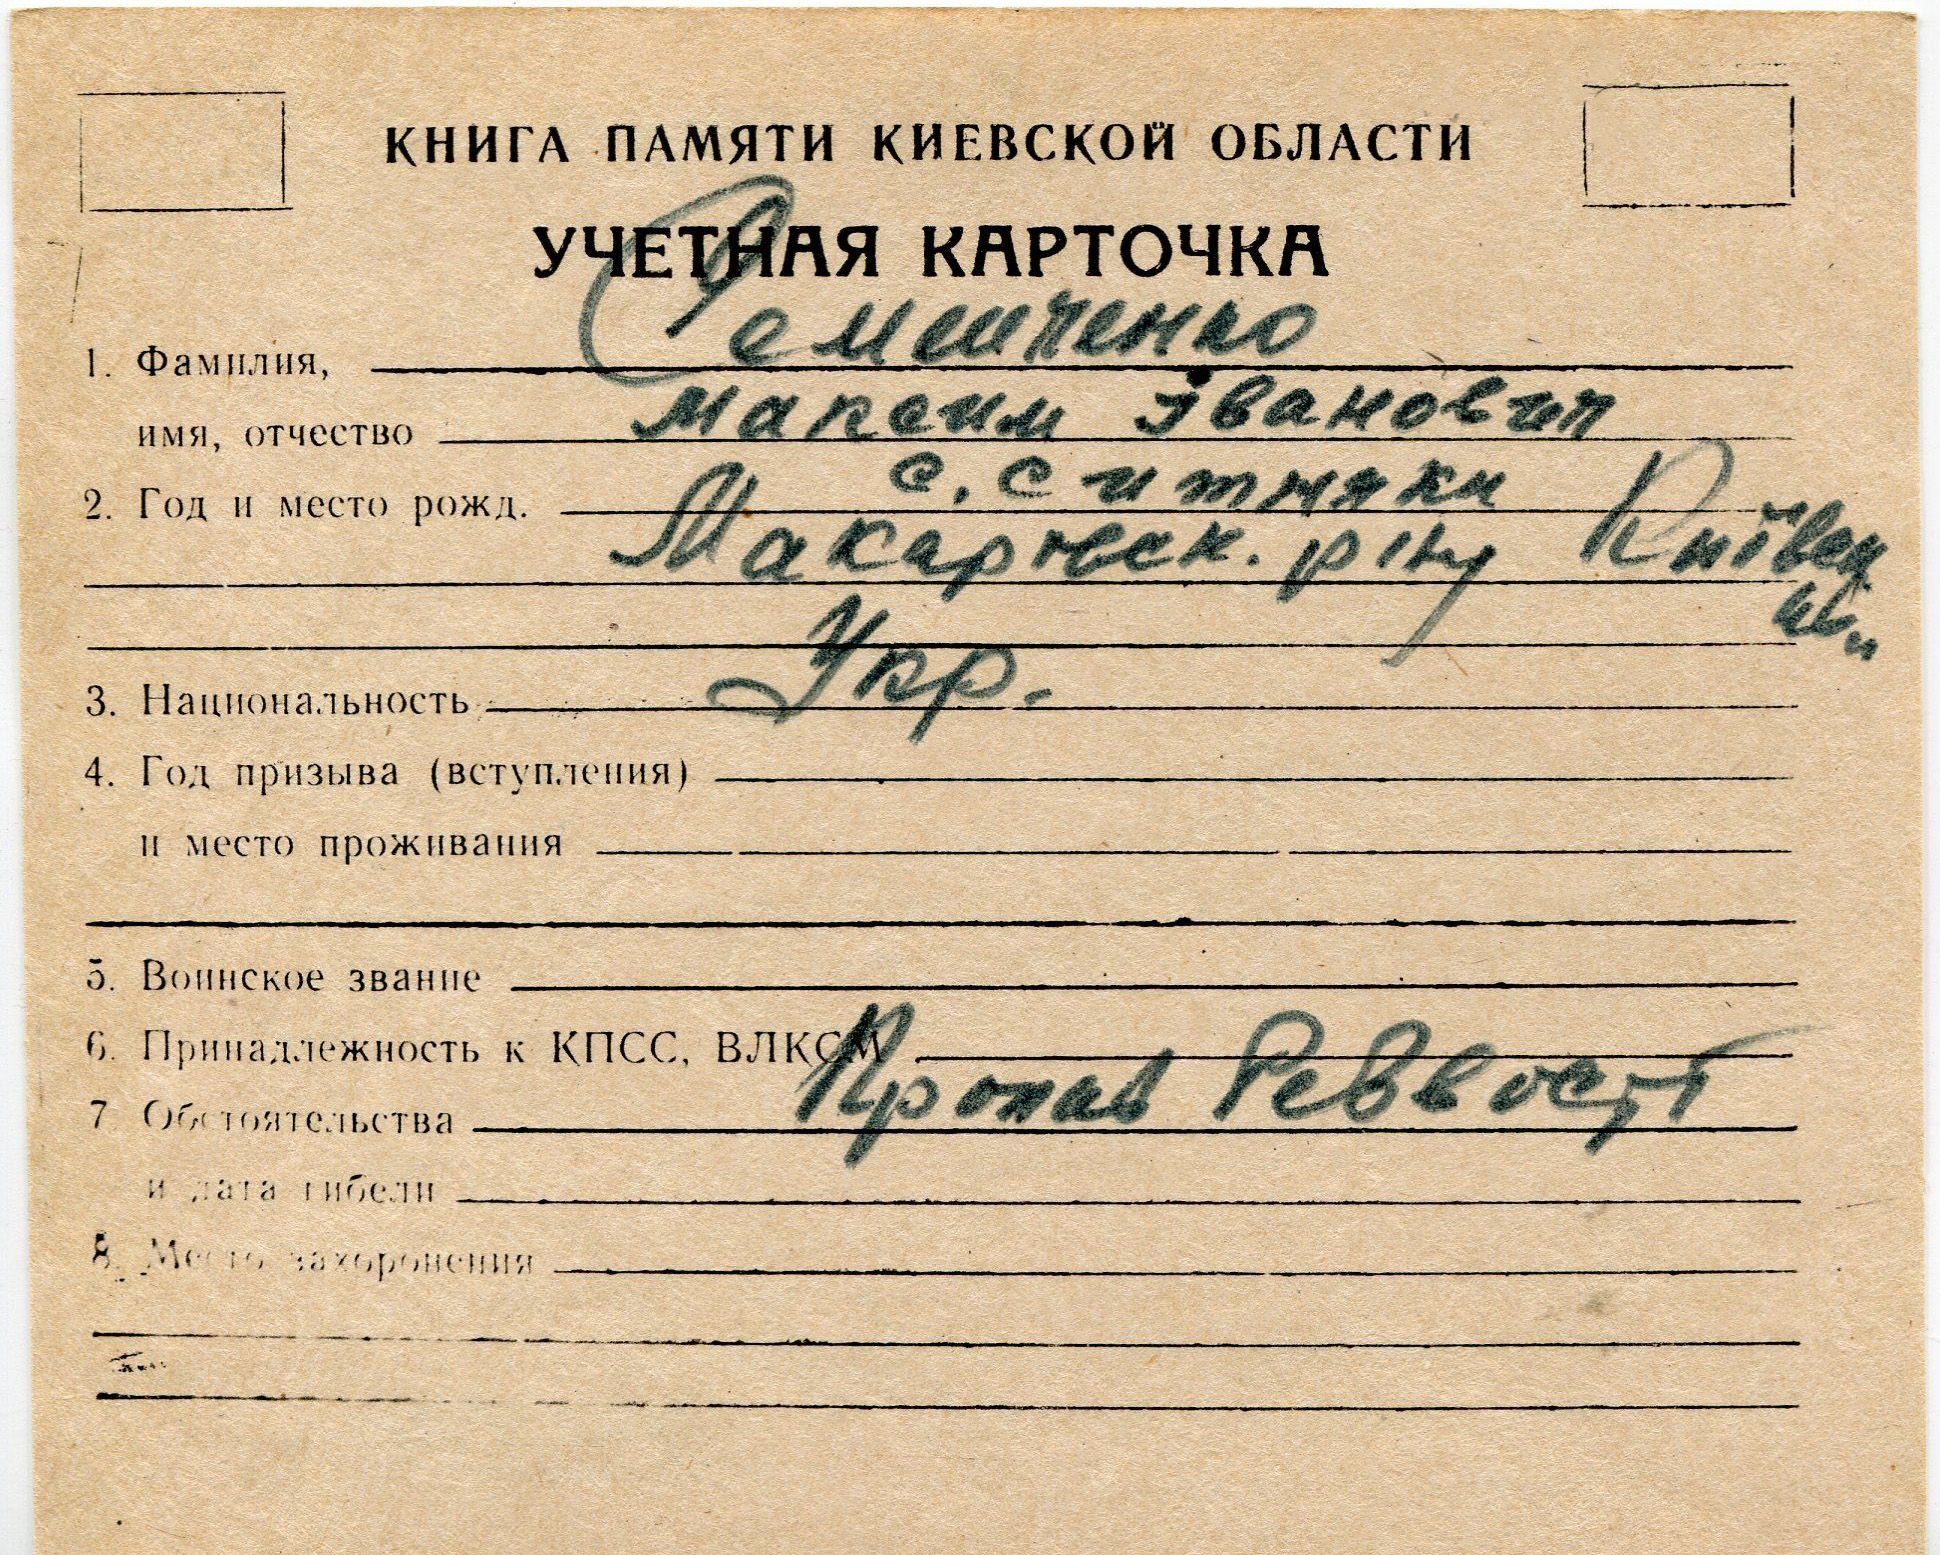 КНИГА ПАМЯТИ КИЕВСКОЙ ОБЛАСТИ
УЧЕТНАЯ КАРТОЧКА
1. Фамилия,
имя, отчество Максим Іванович
2. Год и место рожд. с. Ситняки
Макарівськ. р-ну Київськ
3. Национальность Укр.
4. Год призыва (вступления)
и место проживания
5. Воинское звание
6. Принадлежность к КПСС, ВЛКСМ
7 Обстоятельства Пропав безвест
и дата гибели
8. Место захоронения